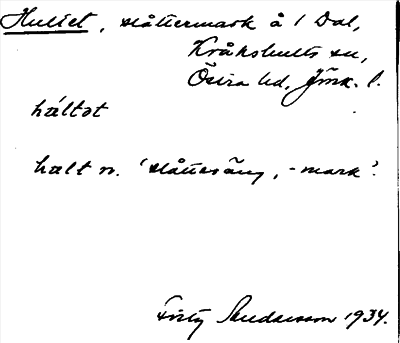 Hultet, slåttermark å 1 Dal,
Kråkshults sn,
Östra hd, Jönk. l.
hál̄tət
halt n. 'slåtteräng, -mark'.
Fritz Andersson 1934.